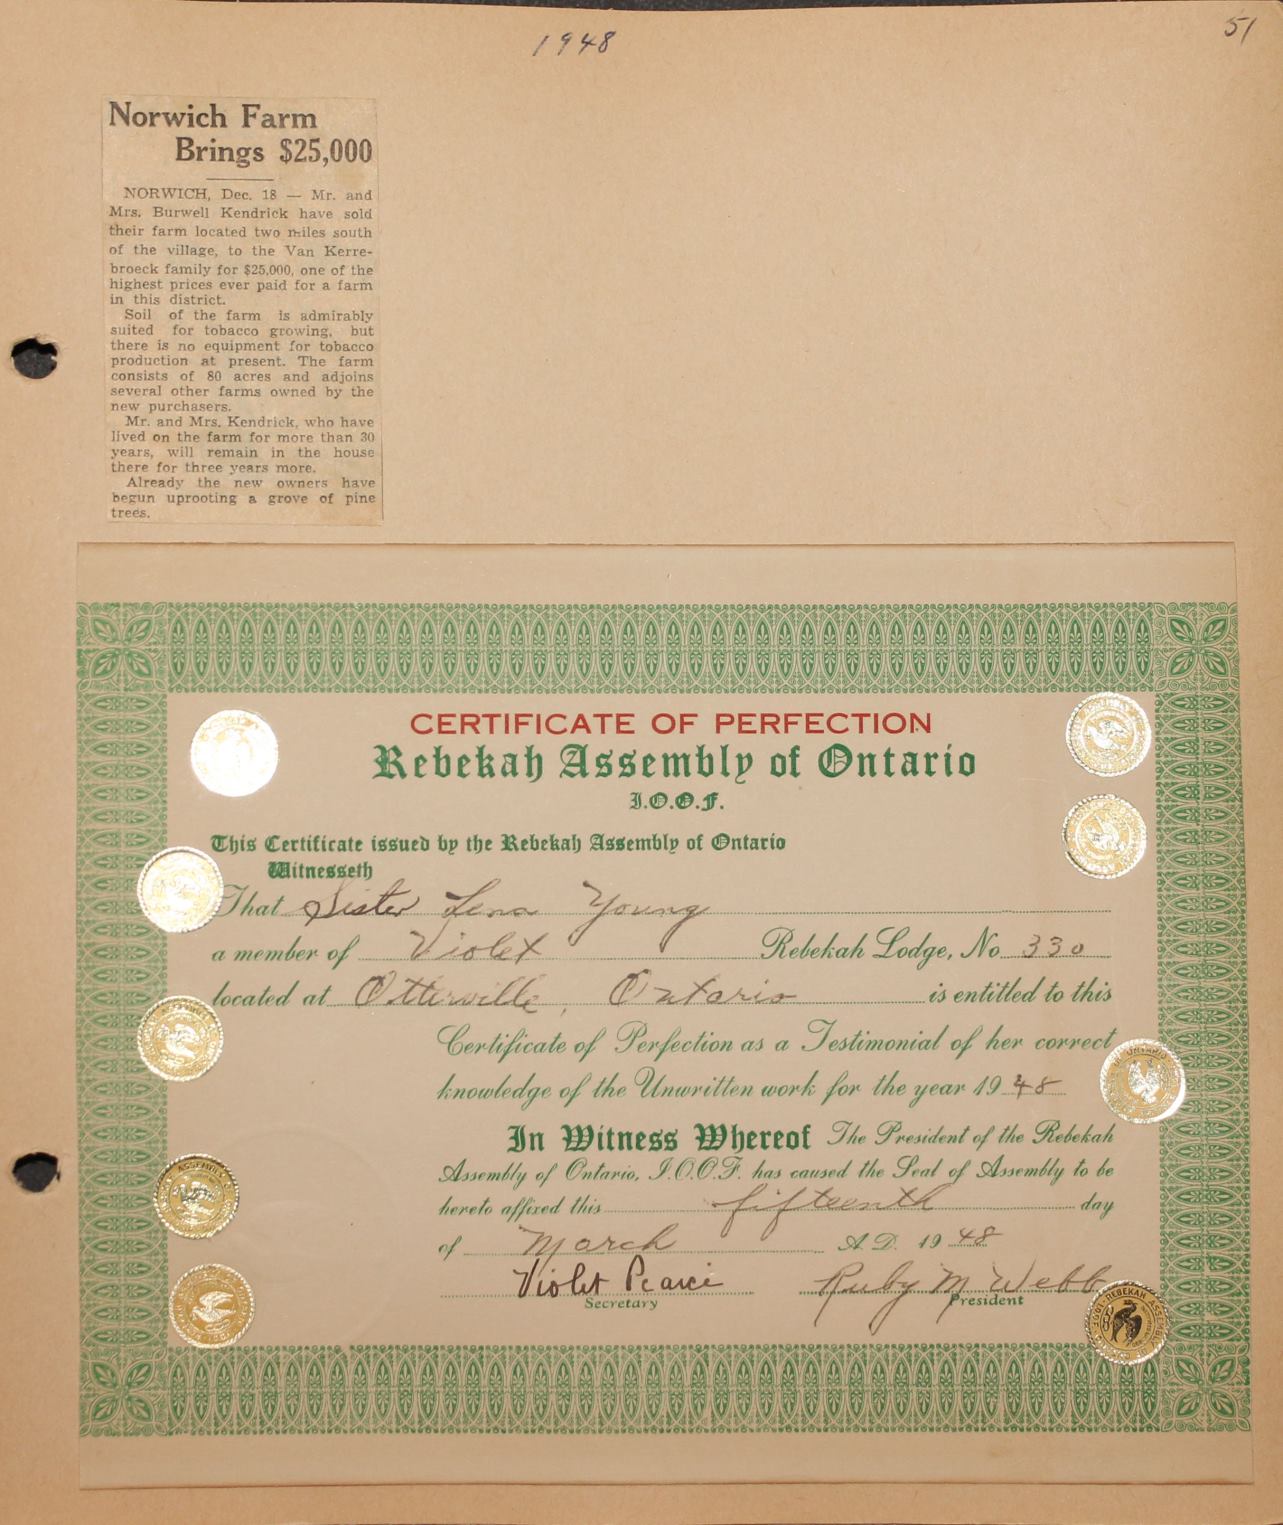 1948
51
Norwich Farm
Brings $25,000
NORWICH, Dec. 18 — Mr. and
Mrs. Burwell Kendrick have sold
their farm located two miles south
of the village, to the Van Kerre-
broeck family for $25,000, one of the
highest prices ever paid for a farm
in this district.
Soil of the farm is admirably
suited for tobacco growing, but
there is no equipment for tobacco
production at present. The farm
consists of 80 acres and adjoins
several other farms owned by the
new purchasers.
Mr. and Mrs. Kendrick, who have
lived on the farm for more than 30
years, will remain in the house
there for three years more.
Already the new owners have
begun uprooting a grove of pine
trees.
CERTIFICATE OF PERFECTION
Rebekah Assembly of Ontario
I.O.O.F.
This Certificate issued by the Rebekah Assembly of Ontario
Witnesseth
That Sister Lena Young
a member of Violet Rebekah Lodge, No 330
located at Otterville, Ontario is entitled to this
Certificate of Perfection as a Testimonial of her correct
knowledge of the Unwritten work for the year 1948
In Witness Whereof The President of the Rebekah
Assembly of Ontario, I.O.O.F. has caused the Seal of Assembly to be
hereto affixed this fifteenth day
of March A.D. 1948
Violet Pearce Ruby M Webb
Secretary President
REBEKAH ASSEMBLY